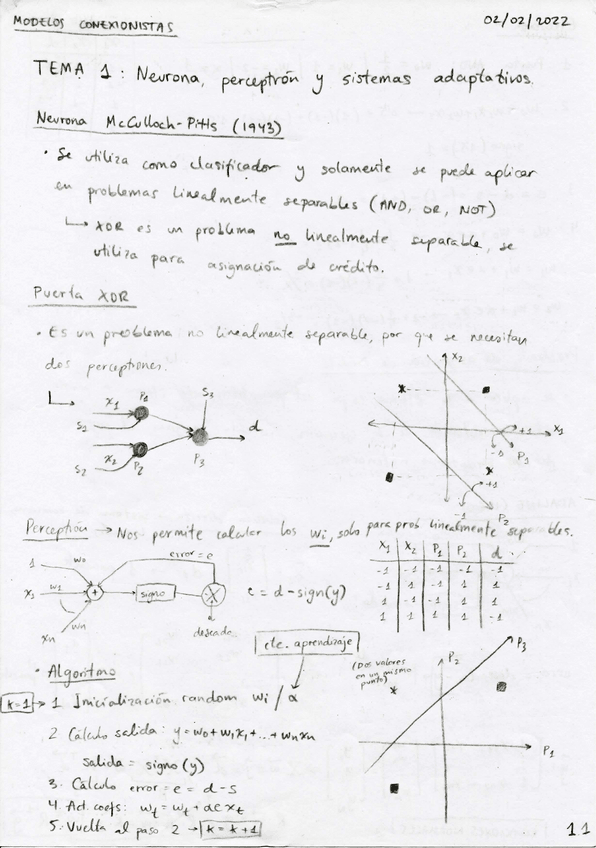 MODELOS CONEXIONISTAS
02/02/2022
TEMA 1: Neurona, perceptrón y sistemas adaptativos.
Neurona McCulloch-Pitts (1943)
· Se utiliza como clasificador y solamente se puede aplicar
en problemas linealmente separables (AND, OR, NOT)
↳ XOR es un problema no linealmente separable, se
utiliza para asignación de crédito.
Puerta XOR
· Es un preoblema no linealmente separable, por que se necesitan
dos perceptiones.
X1 P1 S3
S1 d
X2 P2 P3
S2
X2
X1
+1
-1
P1
+1
-1
P2
Perceptrón → Nos permite calcular los wi, solo para prob linealmente separables.
1 w0 error = e
X1 w1 + signo X
Xn wn deseado
e = d - sign(y)
X1 X2 P1 P2 d
-1 -1 -1 -1 -1
-1 1 1 -1 1
1 -1 1 -1 1
1 1 1 1 -1
cte. aprendizaje
· Algoritmo
k=1 → 1 Inicialización random wi / α
2 Cálculo salida: y = w0 + w1x1 + ... + wnxn
salida = signo (y)
3. Cálculo error = e = d - s
4. Act. coefs: wt = wt + αext
5. Vuelta al paso 2 → k = k+1
(Dos valores
en un mismo
punto)
P2
P3
P1
11